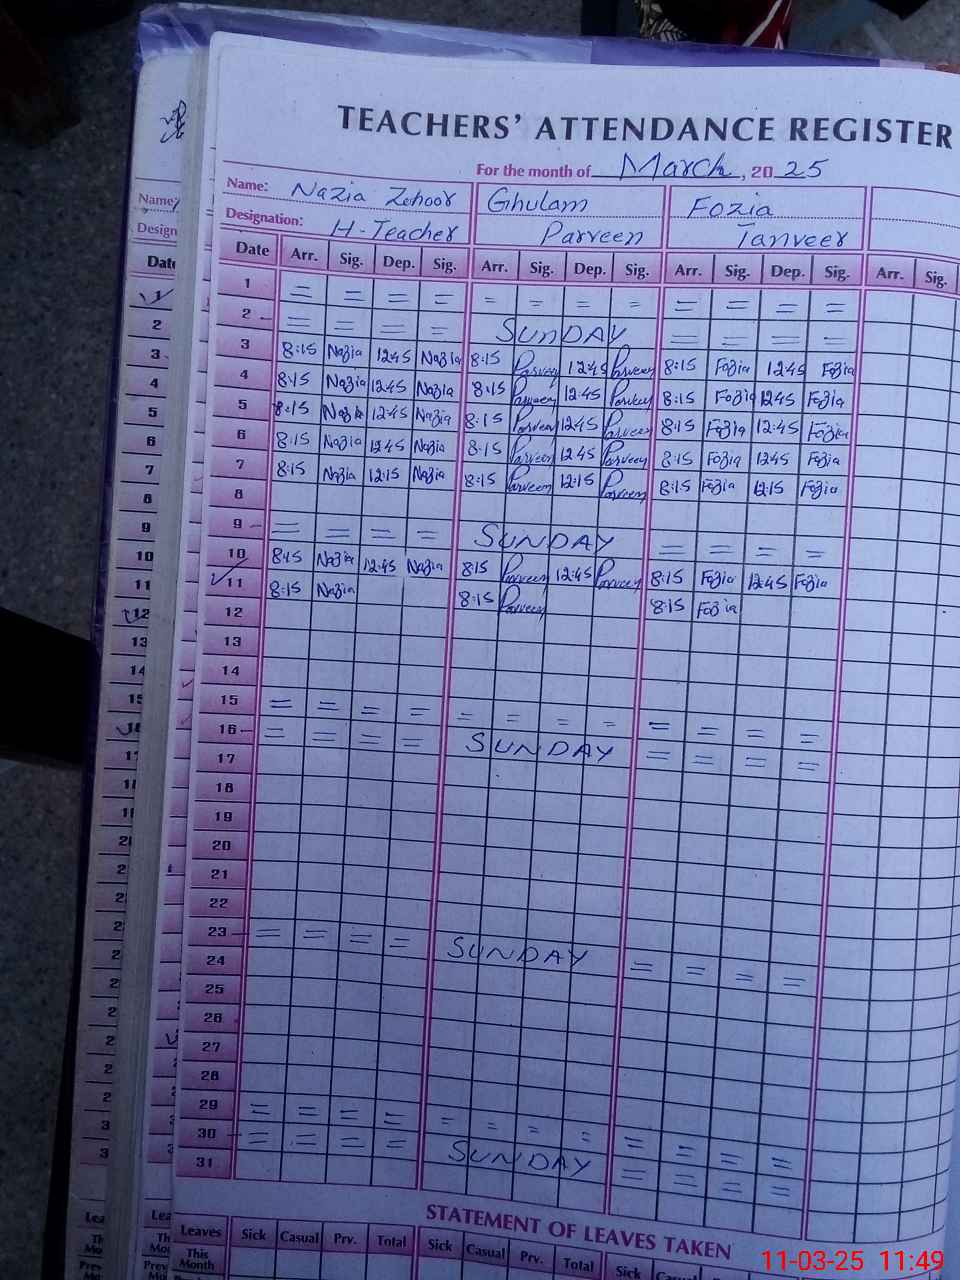 TEACHERS' ATTENDANCE REGISTER
For the month of March, 2025
Name: Nazia Zehoor Ghulam Fozia
Designation: H-Teacher Parveen Tanveer
Date Arr. Sig. Dep. Sig. Arr. Sig. Dep. Sig. Arr. Sig. Dep. Sig. Arr. Sig.
1 = = = = = = = = = = = =
2 = = = = SUNDAY = = = =
3 8:15 Nazia 12:45 Nazia 8:15 Parveen 12:45 Parveen 8:15 Fozia 12:45 Fozia
4 8:15 Nazia 12:45 Nazia 8:15 Parveen 12:45 Parveen 8:15 Fozia 12:45 Fozia
5 8:15 Nazia 12:45 Nazia 8:15 Parveen 12:45 Parveen 8:15 Fozia 12:45 Fozia
6 8:15 Nazia 12:45 Nazia 8:15 Parveen 12:45 Parveen 8:15 Fozia 12:45 Fozia
7 8:15 Nazia 12:15 Nazia 8:15 Parveen 12:15 Parveen 8:15 Fozia 12:15 Fozia
8
9 = = = = SUNDAY = = = =
10 8:15 Nazia 12:45 Nazia 8:15 Parveen 12:45 Parveen 8:15 Fozia 12:45 Fozia
11 8:15 Nazia 8:15 Parveen 8:15 Fozia
12
13
14
15 = = = = = = = = = = = =
16 = = = = SUNDAY = = = =
17
18
19
20
21
22
23 = = = = SUNDAY = = = =
24
25
26
27
28
29 = = = = = = = = = = = =
30 = = = = SUNDAY = = = =
31
STATEMENT OF LEAVES TAKEN
Leaves Sick Casual Prv. Total Sick Casual Prv. Total Sick Casual Prv.
This Month
11-03-25 11:49